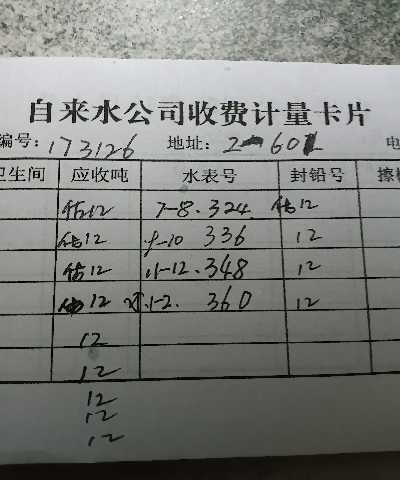 自来水公司收费计量卡片
编号: 173126 地址: 2-601 电
卫生间 应收吨 水表号 封铅号 擦
估12 7-8. 324 估12
估12 9-10 336 12
估12 11-12. 348 12
估12 1-2. 360 12
12
12
12
12
12